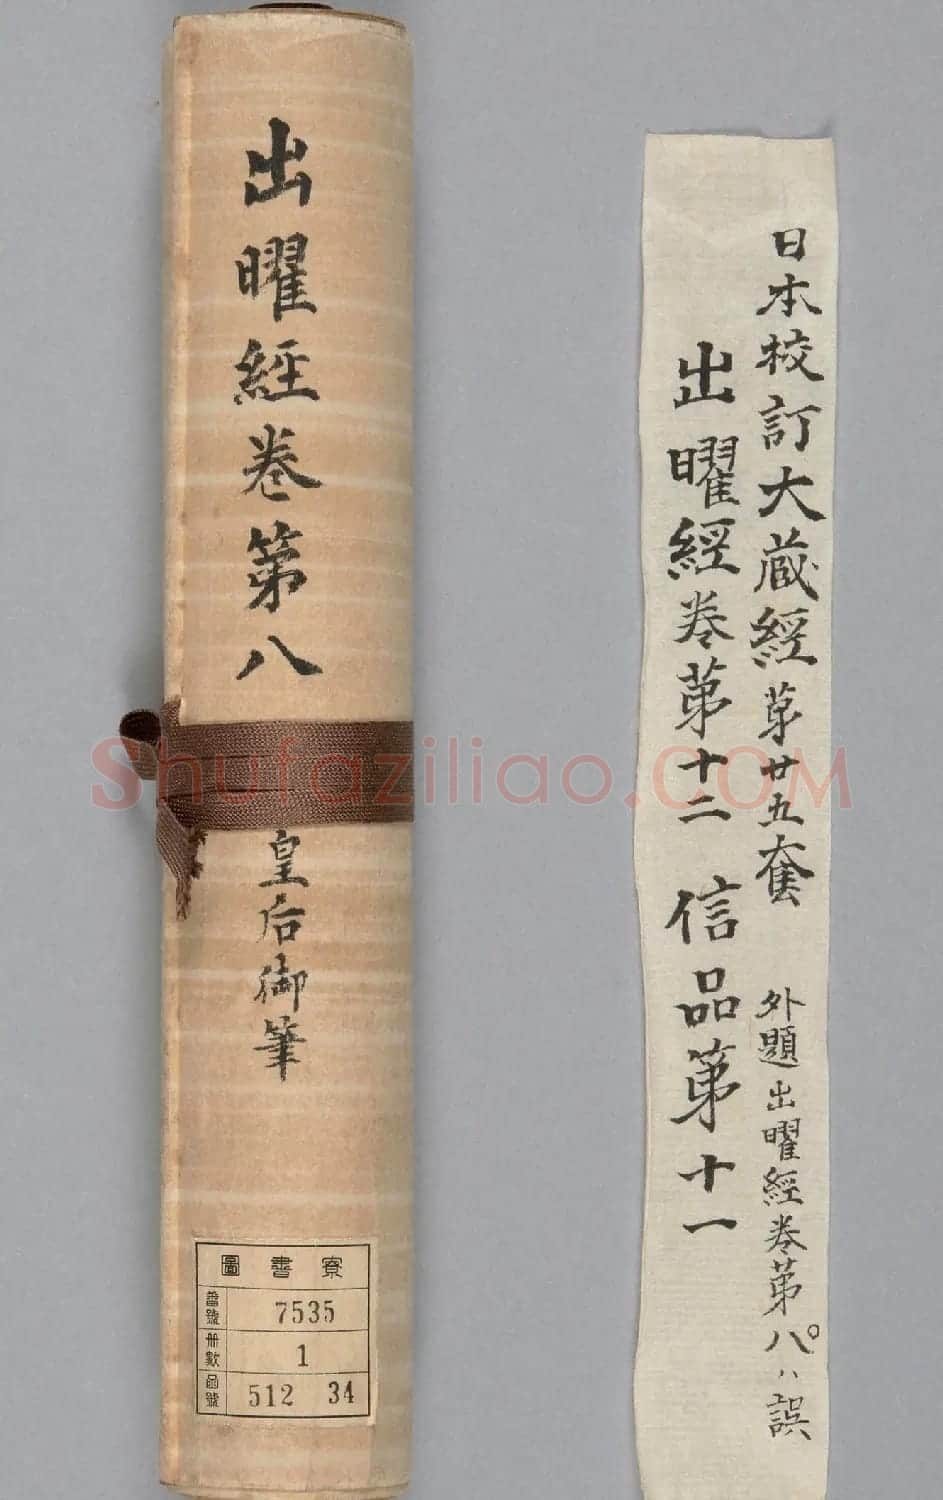 出曜經卷第八
皇后御筆
圖書寮
番號 7535
册數 1
函號 512 34
日本校訂大蔵經第廿五套 外題出曜經卷第八ハ誤
出曜經卷第十二 信品第十一
Shufaziliao.COM